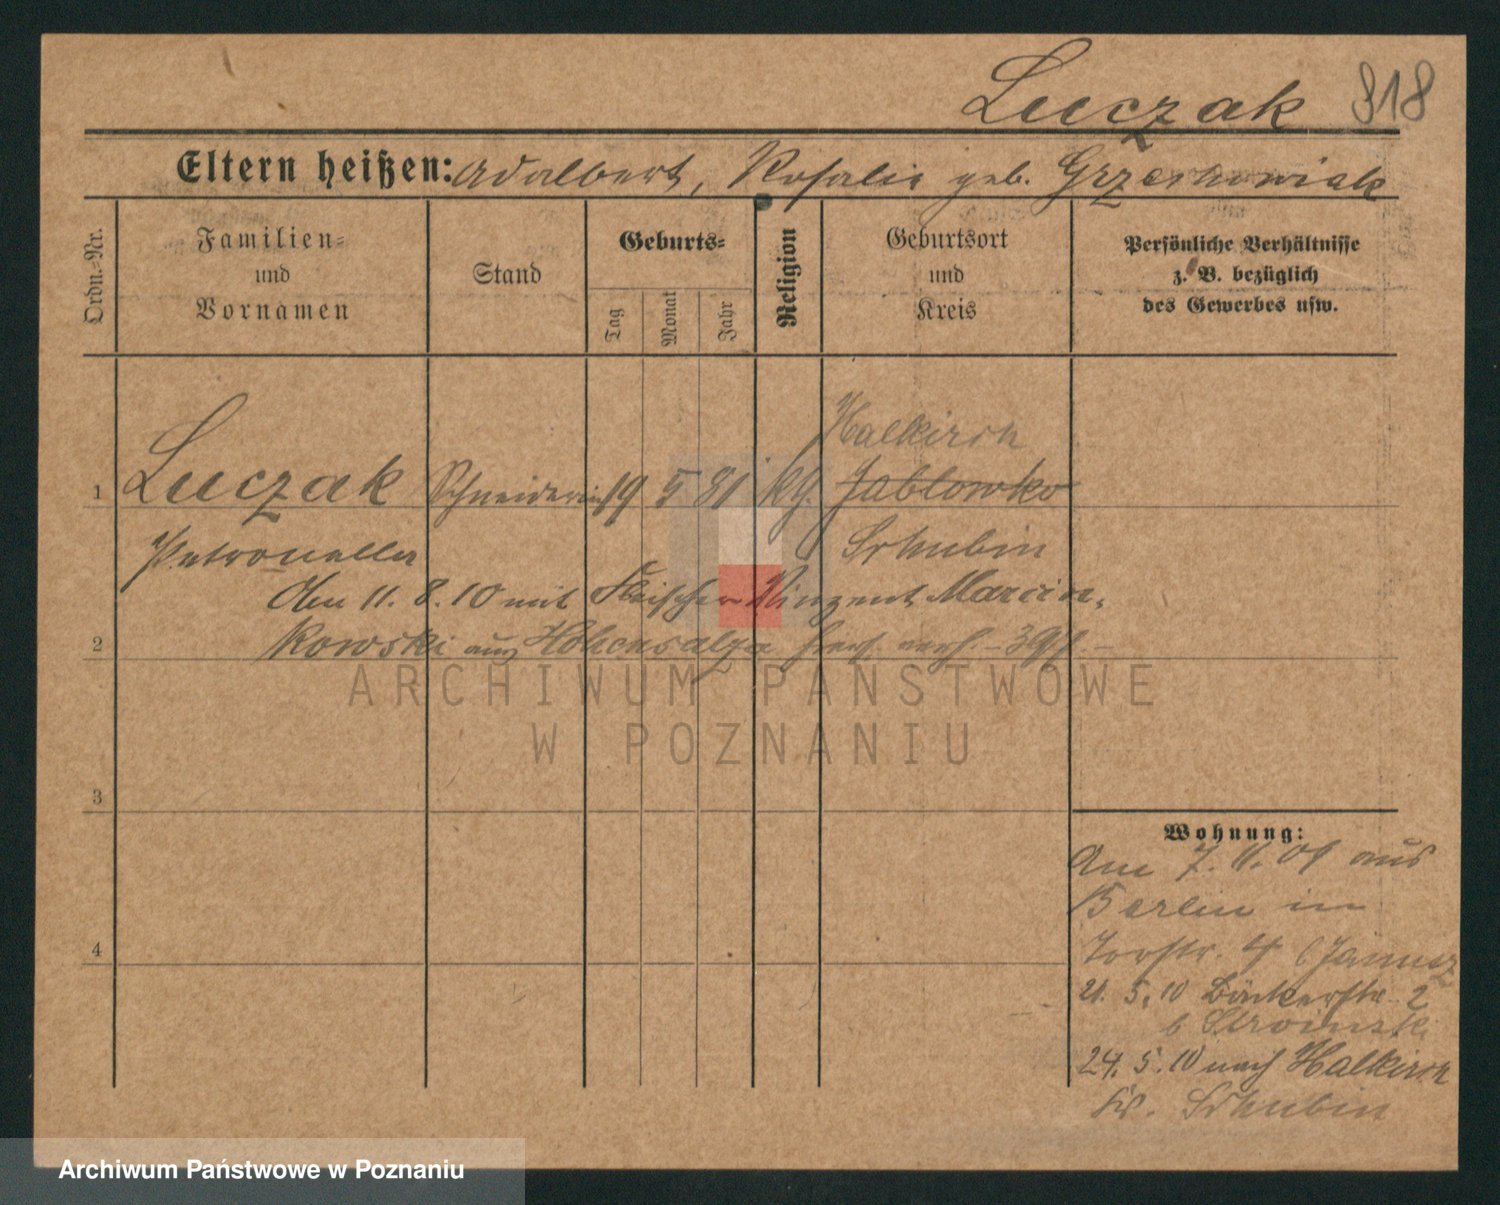 Luczak 818
Eltern heißen: Adalbert, Rosalie geb. Grzeskowiak
Ordn.-Nr.
Familien-
und
Vornamen
Stand
Geburts-
Tag
Monat
Jahr
Religion
Geburtsort
und
Kreis
Persönliche Verhältnisse
z. B. bezüglich
des Gewerbes usw.
Halkirch
1 Luczak Schneiderin 19 5 81 kg. Jablowko
Petronella Schubin
Am 11. 8. 10 mit Fleischer Vinzent Marcin-
2 kowski aus Hohensalza
ARCHIWUM PAŃSTWOWE
W POZNANIU
3
4
Wohnung:
Am 7. aus
Berlin in
Torstr. 4 b Janusz
21. 5. 10 Bäckerstr. 2
b Stroinski
24. 5. 10 nach Halkirch
Kr. Schubin
Archiwum Państwowe w Poznaniu